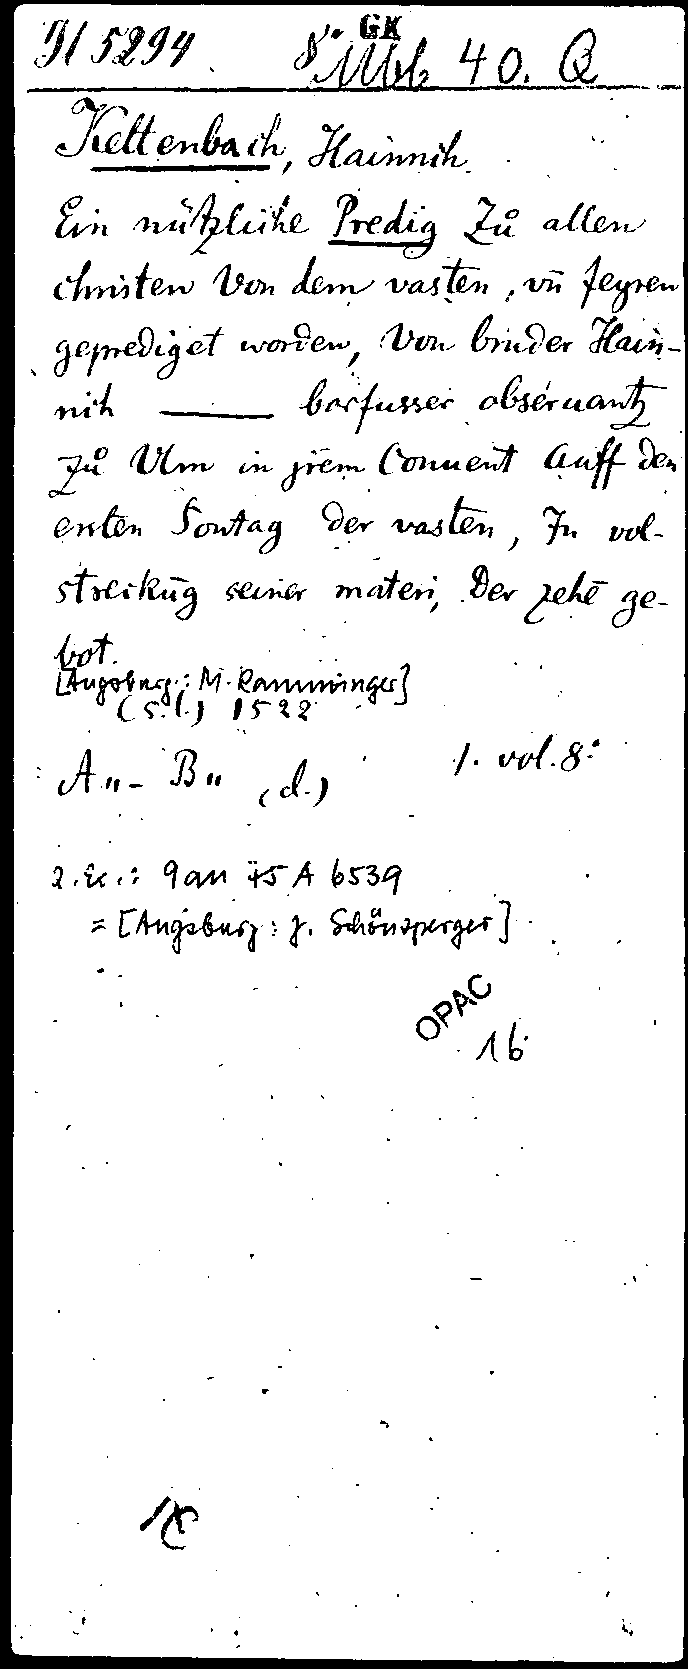 GK
H 5294 8° Mbb 40. Q
Kettenbach, Hainrich.
Ein nützliche Predig Zů allen
christen Von dem vasten, vn̄ feyren
geprediget worden, Von bruder Hain-
rich ——— barfusser obseruantz
zů Ulm in jrem Conuent Auff den
ersten Sontag der vasten, In vol-
streckūg seiner materi, Der zehē ge-
bot.
[Augsburg: M. Ramminger]
(s.l.) 1522
A"- B" (d.) 1. vol. 8°
2. Ex.: 9 an 45 A 6539
= [Augsburg: J. Schönsperger]
OPAC
16